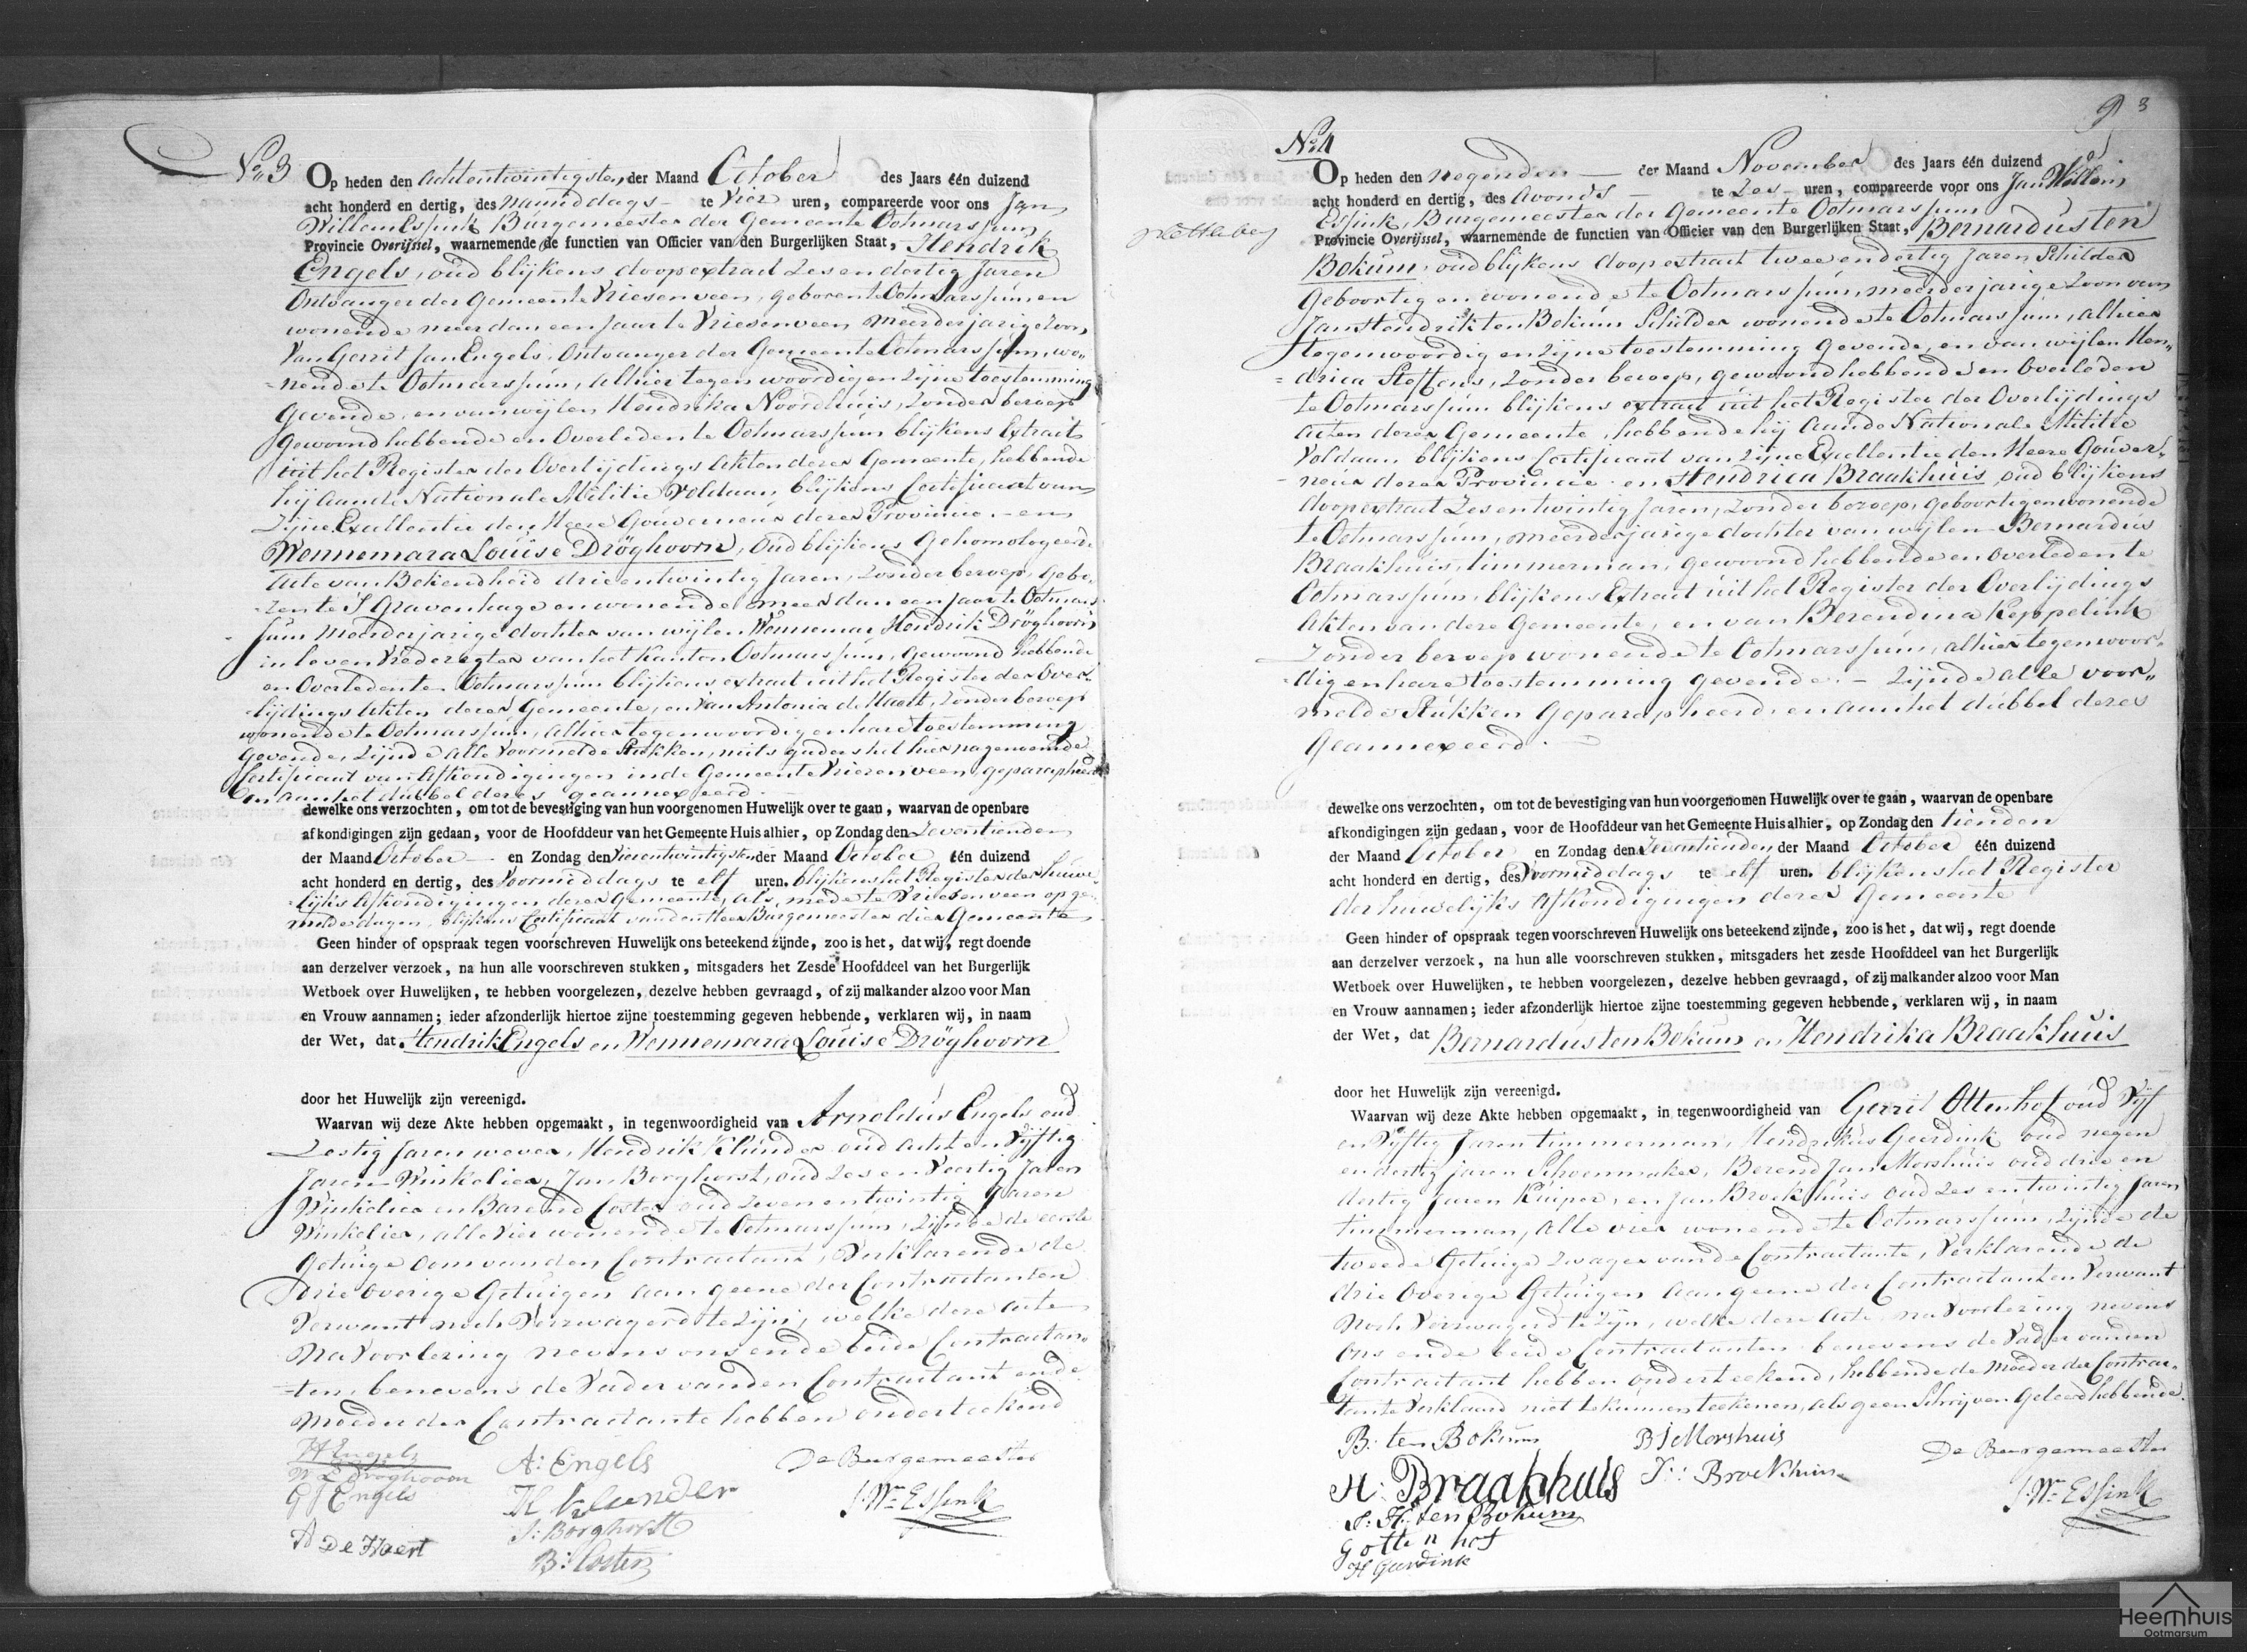 No 3
Op heden den achtentwintigsten der Maand October des Jaars één duizend
acht honderd en dertig, des namiddags te vier uren, compareerde voor ons Jan
Willem Essink Burgemeester der Gemeente Ootmarssum
Provincie Overijssel, waarnemende de functien van Officier van den Burgerlijken Staat, Hendrik
Engels, oud blijkens doopextract Zesendertig Jaren
Ontvanger der Gemeente Vriesenveen, geboren te Ootmarssum, en
wonende meer dan een Jaar te Vriesenveen meerderjarige Zoon
van Gerrit Jan Engels, Ontvanger der Gemeente Ootmarssum, wo„
„nende te Ootmarssum, alhier tegenwoordig en zijne toestemming
gevende, en van wijlen Hendrika Noordhuis, zonder beroep
gewoond hebbende en Overleden te Ootmarssum blijkens Extract
uit het Register der Overlijdings Akten dezer Gemeente, hebbende
hij aan de Nationale Militie voldaan, blijkens Certificaat van
Zijne Excellentie den Heere Gouverneur dezer Provincie. – en
Wennemara Louise Dröghoorn, oud blijkens gehomologeerde
Acte van Bekendheid drieentwintig Jaren, zonder beroep, gebo„
„ren te S'Gravenhage en wonende meer dan een Jaar te Ootmars„
sum meerderjarige dochter van wijlen Wennemar Hendrik Dröghoorn
in leven Vrederegter van het Kanton Ootmarssum, gewoond hebbende
en Overleden te Ootmarssum blijkens extract uit het Register der Over„
„lijdings Akten dezer Gemeente, en van Antonia de Haert, zonder beroep
wonende te Ootmarssum, alhier tegenwoordig en hare toestemming
gevende, zijnde alle voormelde Stukken, mitsgaders het hierna genoemde
Certificaat van Afkondigingen in de Gemeente Vriezenveen, geparapheerd
en aan het dubbel dezes geannexeerd. –
dewelke ons verzochten, om tot de bevestiging van hun voorgenomen Huwelijk over te gaan, waarvan de openbare
afkondigingen zijn gedaan, voor de Hoofddeur van het Gemeente Huis alhier, op Zondag den Zeventienden
der Maand October en Zondag den Vierentwintigsten der Maand October één duizend
acht honderd en dertig, des Voormiddags te elf uren. blijkens het Register der Huwe„
„lijks Afkondigingen dezer Gemeente, als mede te Vriesenveen op ge„
melde dagen, blijkens Certificaat van den Heer Burgemeester dier Gemeente
Geen hinder of opspraak tegen voorschreven Huwelijk ons beteekend zijnde, zoo is het, dat wij, regt doende
aan derzelver verzoek, na hun alle voorschreven stukken, mitsgaders het Zesde Hoofddeel van het Burgerlijk
Wetboek over Huwelijken, te hebben voorgelezen, dezelve hebben gevraagd, of zij malkander alzoo voor Man
en Vrouw aannamen; ieder afzonderlijk hiertoe zijne toestemming gegeven hebbende, verklaren wij, in naam
der Wet, dat Hendrik Engels en Wennemara Louise Dröghoorn
door het Huwelijk zijn vereenigd.
Waarvan wij deze Akte hebben opgemaakt, in tegenwoordigheid van Arnoldus Engels oud
Zestig Jaren wever, Hendrik Klunder oud acht en Vijftig
Jaren Winkelier, Jan Borghorst, oud Zes en Veertig Jaren
Winkelier en Barend Coster oud Zevenentwintig Jaren
Winkelier, alle vier wonende te Ootmarssum, zijnde de eerste
getuige oom van den Contractant, Verklarende de
drie overige Getuigen aan geene der Contractanten
Verwant noch Verzwagerd te zijn, welke deze acte
na Voorlezing nevens ons ende beide Contractan„
„ten, benevens de Vader van den Contractant ende
Moeder der Contractante hebben onderteekend
H Engels
W L Droghoorn
G J Engels
A De Haert
A: Engels
H Klunder
J: Borghorst
B: Coster
De Burgemeester
J. Wm Essink
3
No 4
Op heden den negenden der Maand November des Jaars één duizend
acht honderd en dertig, des Avonds te Zes uren, compareerde voor ons Jan Willem
Essink, Burgemeester der Gemeente Ootmarssum
Provincie Overijssel, waarnemende de functien van Officier van den Burgerlijken Staat, Bernardus ten
Bokum, oud blijkens doopextract tweeendertig Jaren Schilder
Geboortig en wonende te Ootmarssum, meerderjarige Zoon van
Jan Hendrik ten Bokum Schilder wonende te Ootmarssum, alhier
tegenwoordig en zijne toestemming gevende, en van wijlen Hen„
„drica Steffens, zonder beroep, gewoond hebbende en Overleden
te Ootmarssum blijkens extract uit het Register der Overlijdings
Acten dezer Gemeente, hebbende hij aan de Nationale Militie
Voldaan blijkens Certificaat van Zijne Excellentie den Heere Gouver„
„neur dezer Provincie. en Hendrica Braakhuis, oud blijkens
doopextract Zesentwintig Jaren, zonder beroep, geboortig en wonende
te Ootmarssum, meerderjarige dochter van wijlen Bernardus
Braakhuis, timmerman, gewoond hebbende en overleden te
Ootmarssum, blijkens Extract uit het Register der Overlijdings
Akten van deze Gemeente, en van Berendina Keppelink
Zonder beroep wonende te Ootmarssum, alhier tegenwoor„
„dig en hare toestemming gevende. – Zijnde alle voor„
melde Stukken geparapheerd en aan het dubbel dezes
Geannexeerd. –
dewelke ons verzochten, om tot de bevestiging van hun voorgenomen Huwelijk over te gaan, waarvan de openbare
afkondigingen zijn gedaan, voor de Hoofddeur van het Gemeente Huis alhier, op Zondag den tienden
der Maand October en Zondag den Zeventienden der Maand October één duizend
acht honderd en dertig, des Voormiddags te elf uren. blijkens het Register
der huwelijks Afkondigingen dezer Gemeente
Geen hinder of opspraak tegen voorschreven Huwelijk ons beteekend zijnde, zoo is het, dat wij, regt doende
aan derzelver verzoek, na hun alle voorschreven stukken, mitsgaders het zesde Hoofddeel van het Burgerlijk
Wetboek over Huwelijken, te hebben voorgelezen, dezelve hebben gevraagd, of zij malkander alzoo voor Man
en Vrouw aannamen; ieder afzonderlijk hiertoe zijne toestemming gegeven hebbende, verklaren wij, in naam
der Wet, dat Bernardus ten Bokum en Hendrika Braakhuis
door het Huwelijk zijn vereenigd.
Waarvan wij deze Akte hebben opgemaakt, in tegenwoordigheid van Gerrit Ottenhof oud Vijf
en Vijftig Jaren timmerman, Hendrikus Geerdink oud negen
en dertig jaren Schoenmaker, Berend Jan Morshuis oud drie en
dertig Jaren Kuiper, en Jan Broekhuis oud Zes en twintig Jaren
timmerman, alle vier wonende te Ootmarssum, zijnde de
tweede Getuige Zwager van de Contractante, Verklarende de
drie Overige Getuigen aan geene der Contractanten Verwant
noch Verzwagerd te zijn, welke deze Acte na Voorlezing nevens
Ons ende beide Contractanten benevens de Vader van den
Contractant hebben onderteekend, hebbende de Moeder der Contrac„
tante Verklaard niet te kunnen teekenen, als geen Schrijven Geleerd hebbende.
B: ten Bokum
H: Braakhuis
J: H: ten Bokum
G otten hof
H Geerdink
B J Morshuis
J: Broekhuis
De Burgemeester
J. Wm Essink
Heemhuis
Ootmarsum